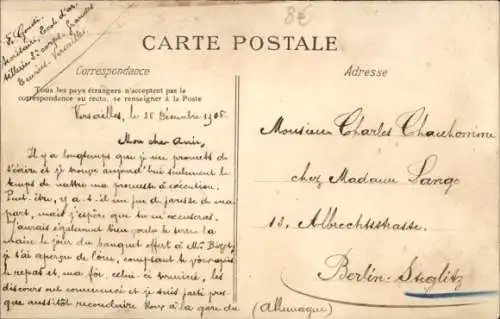 8€
F. Goudi
secrétaire, École d'ar-
tillerie 2e corps, gendre
Versailles.
CARTE POSTALE
Correspondance
Adresse
Tous les pays étrangers n'acceptent pas le
correspondance au recto, se renseigner à la Poste
Versailles, le 28 Décembre 1905.
Mon cher Ami,
Il y a longtemps que je me promets de
t'écrire et je trouve aujourd'hui seulement le
temps de mettre ma promesse à exécution.
Peut-être, y a-t-il un peu de paresse de ma
part, mais j'espère que tu m'excuseras.
J'aurais également bien voulu te serrer la
main le jour du banquet offert à Mr.
je t'ai aperçu de loin, comptant te
le repas et, ma foi, celui-ci terminé, les
discours ont commencé et je suis parti pres-
que aussitôt reconduire à la gare du
Monsieur Charles Chauhomme
chez Madame Lange
13. Albrechtstrasse.
Berlin-Steglitz
(Allemagne)